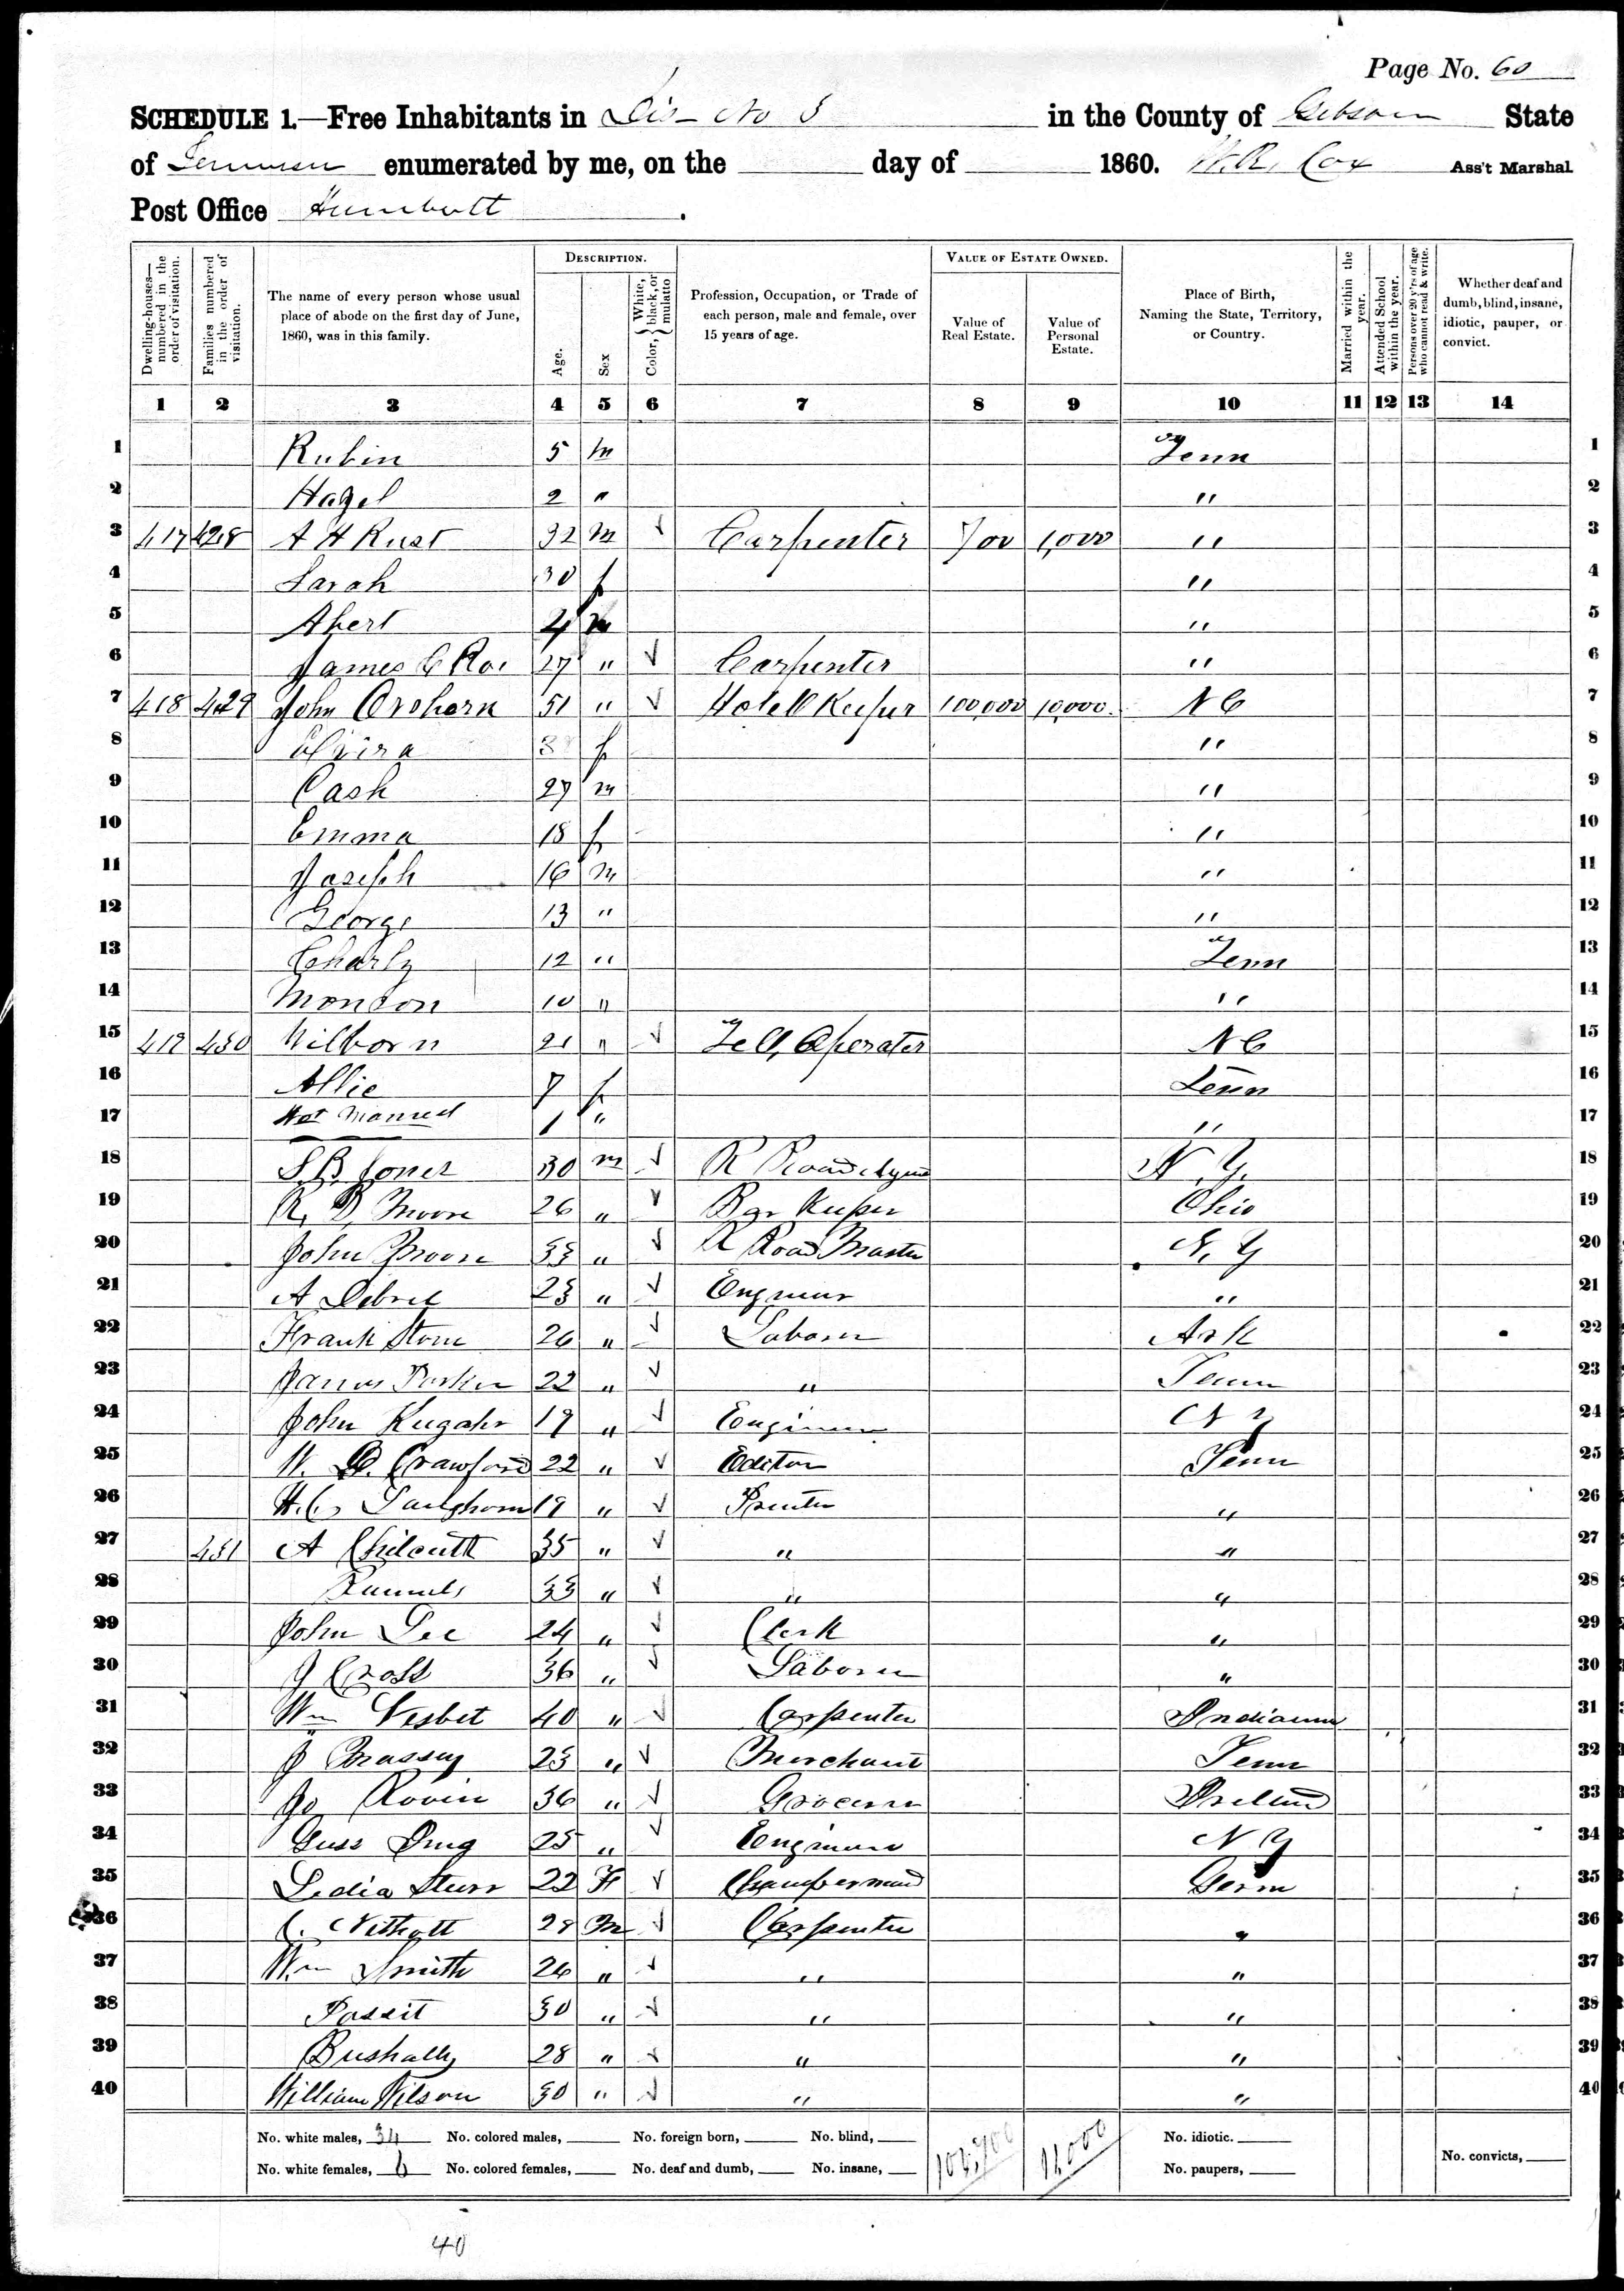 Page No. 60
SCHEDULE 1.—Free Inhabitants in Dis- No 3 in the County of Gibson State
of Tennessee enumerated by me, on the day of 1860. W.R. Cox Ass't Marshal
Post Office Humboltt.
Dwelling-houses—numbered in the order of visitation.
Families numbered in the order of visitation.
The name of every person whose usual place of abode on the first day of June, 1860, was in this family.
DESCRIPTION.
Age.
Sex
Color, } White, black, or mulatto
Profession, Occupation, or Trade of each person, male and female, over 15 years of age.
VALUE OF ESTATE OWNED.
Value of Real Estate.
Value of Personal Estate.
Place of Birth, Naming the State, Territory, or Country.
Married within the year.
Attended School within the year.
Persons over 20 y'rs of age who cannot read & write.
Whether deaf and dumb, blind, insane, idiotic, pauper, or convict.
1 2 3 4 5 6 7 8 9 10 11 12 13 14
1 Rubin 5 m Tenn 1
2 Hazel 2 " " 2
3 417 428 A H Rust 32 m Carpenter 700 1,000 " 3
4 Sarah 30 f " 4
5 Abert 4 m " 5
6 James C Roe 27 " Carpenter " 6
7 418 429 John 51 " Hotell Keeper 100,000 10,000 N C 7
8 Elvira f " 8
9 Cash 27 m " 9
10 Emma 18 f " 10
11 Joseph 16 m " 11
12 George 13 " " 12
13 Charly 12 " Tenn 13
14 Monroon 10 " " 14
15 419 430 Wilborn 21 " Tell, Operater N C 15
16 Allie 7 f Tenn 16
17 Not Named 1 " " 17
18 S. B. Jones 30 m R Road Agent N. Y. 18
19 R. D. Moore 26 " Bar Keeper Ohio 19
20 John Moore 33 " R Road Master N. Y 20
21 A 23 " Engineer " 21
22 Frank Stone 26 " Laborer Ark 22
23 James Parker 22 " " Tenn 23
24 John 19 " Engineer N Y 24
25 W. D. Crawford 22 " Editor Tenn 25
26 H. C. 19 " Printer " 26
27 431 A Chilcutt 35 " " " 27
28 33 " " " 28
29 John Lee 24 " Clerk " 29
30 J Cross 36 " Laborer " 30
31 Wm Nesbet 40 " Carpenter Indiana 31
32 J Massey 23 " Merchant Tenn 32
33 Jo Rovin 36 " Grocerer Irelland 33
34 Guss 25 " Engineer N Y 34
35 Ledia 22 F Chambermaid Germ 35
36 C. 28 M Carpenter " 36
37 Wm Smith 26 " " " 37
38 30 " " " 38
39 28 " " " 39
40 William Wilson 30 " " " 40
No. white males, 34 No. colored males, No. foreign born, No. blind, 11,000 No. idiotic.
No. white females, 6 No. colored females, No. deaf and dumb, No. insane, No. paupers, No. convicts,
40